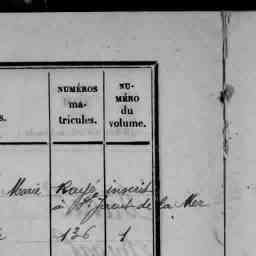 s.
NUMÉROS
ma-
tricules.
NU-
MÉRO
du
volume.
Marie Rayé inscrit
à St Jacut de la Mer
136 1